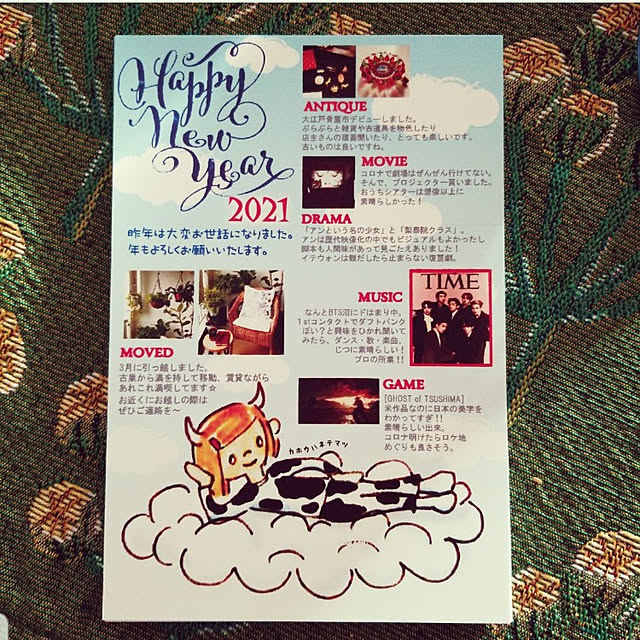 Happy
New
Year
2021
昨年は大変お世話になりました。
年もよろしくお願いいたします。
ANTIQUE
大江戸骨董市デビューしました。
ぷらぷらと雑貨や古道具を物色したり
店主さんの蘊蓄聞いたり、とっても楽しいです。
古いものは良いですね。
MOVIE
コロナで劇場はぜんぜん行けてない。
そんで、プロジェクター買いました。
おうちシアターは想像以上に
素晴らしかった！
DRAMA
「アンという名の少女」と「梨泰院クラス」。
アンは歴代映像化の中でもビジュアルもよかったし
脚本も人間味があって見ごたえありました！
イテウォンは観だしたら止まらない復讐劇。
MUSIC
なんとBTS沼にドはまり中。
1stコンタクトでダフトパンク
ぽい？と興味をひかれ聞いて
みたら、ダンス・歌・楽曲、
じつに素晴らしい！
プロの所業！！
TIME
MOVED
3月に引っ越しました。
古巣から満を持して移動、賃貸ながら
あれこれ満喫してます☆
お近くにお越しの際は
ぜひご連絡を〜
GAME
[GHOST of TSUSHIMA]
米作品なのに日本の美学を
わかってすぎ！！
素晴らしい出来。
コロナ明けたらロケ地
めぐりも良さそう。
カホウハネテマツ